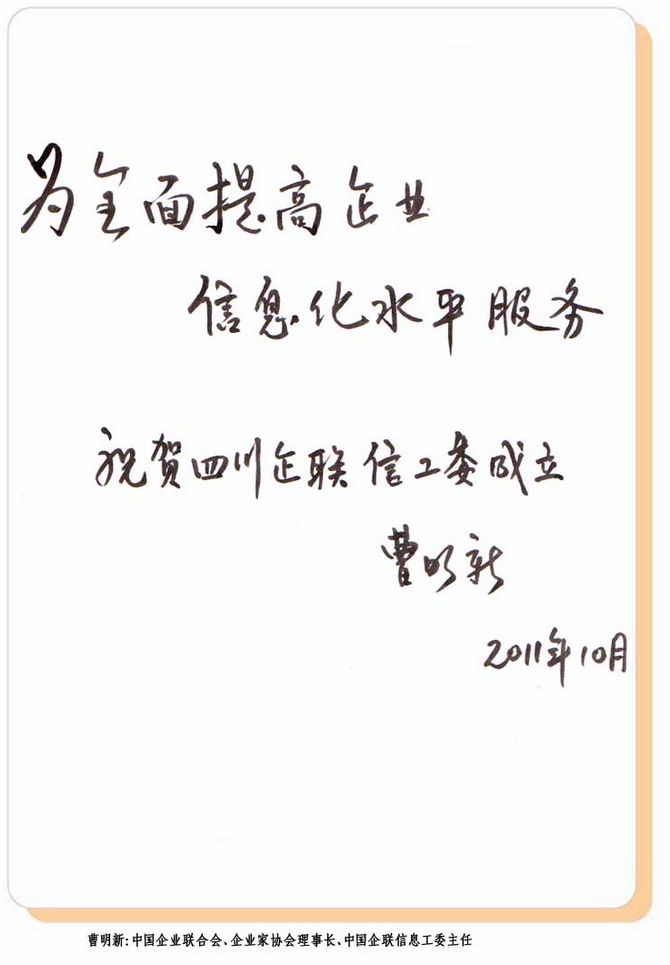 为全面提高企业
信息化水平服务
祝贺四川企联信工委成立
曹明新
2011年10月
曹明新:中国企业联合会、企业家协会理事长、中国企联信息工委主任